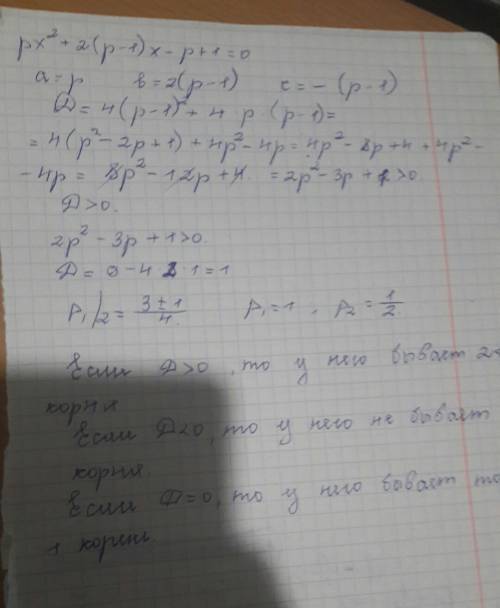 px² + 2(p-1)x - p+1=0
a=p b=2(p-1) c= - (p-1)
D= 4(p-1)² + 4 p (p-1)=
= 4(p² - 2p+1) + 4p² - 4p = 4p² - 8p+4 + 4p² -
- 4p = 8p² - 12p + 4. = 2p² - 3p + 1>0.
D>0.
2p² - 3p + 1>0.
D= 9 - 4 2 · 1 = 1
P₁/₂ = (3 ± 1)/4. P₁=1, P₂ = 1/2.
Если D>0, то у него бывает 2
корня
Если D<0, то у него не бывает
корня.
Если D=0, то у него бывает то
1 корень.